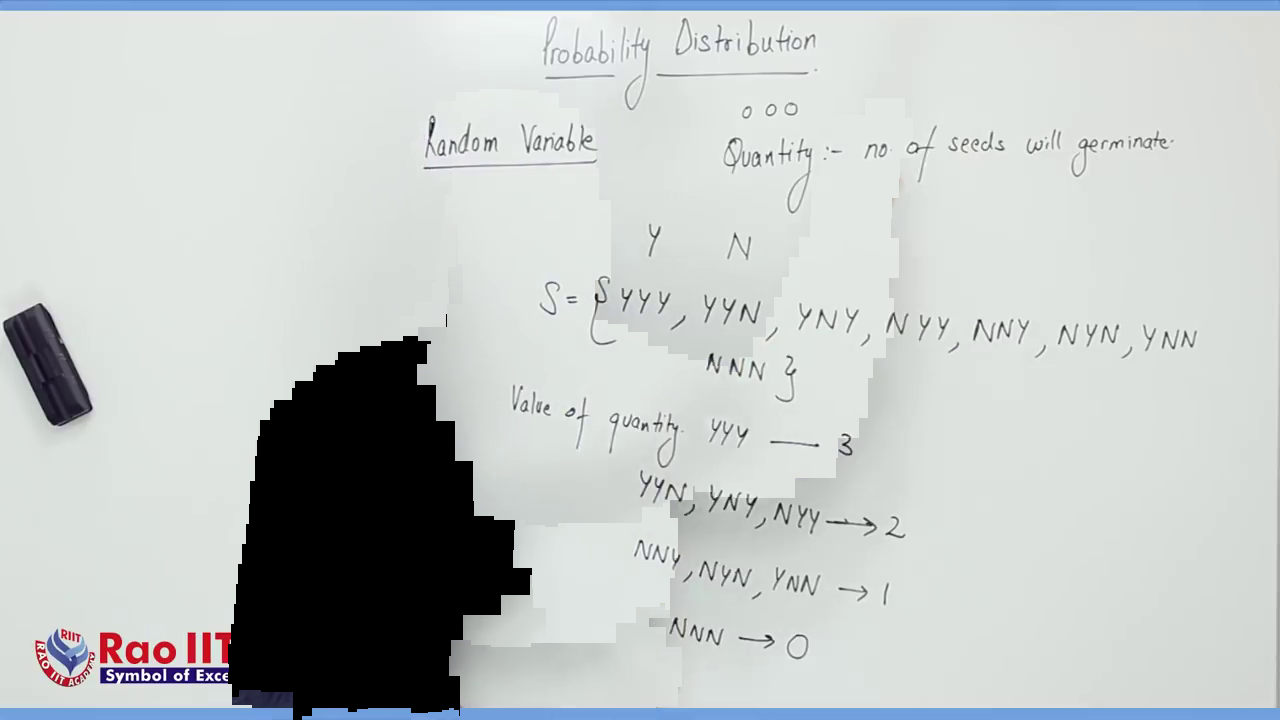 Probability Distribution
Random Variable
o o o
Quantity :- no. of seeds will germinate.
Y N
S = { YYY, YYN, YNY, NYY, NNY, NYN, YNN
NNN }
Value of quantity. YYY — 3
YYN, YNY, NYY → 2
NNY, NYN, YNN → 1
NNN → 0
RIIT
RAO IIT ACADEMY
Rao IIT
Symbol of Exce